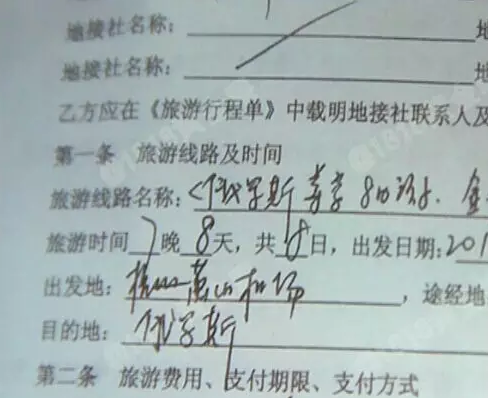 地接社名称：
地接社名称：
乙方应在《旅游行程单》中载明地接社联系人及
第一条 旅游线路及时间
旅游线路名称：<俄罗斯 8日游
旅游时间7晚8天，共8日，出发日期：201
出发地：杭州萧山机场，途经地
目的地：俄罗斯
第二条 旅游费用、支付期限、支付方式